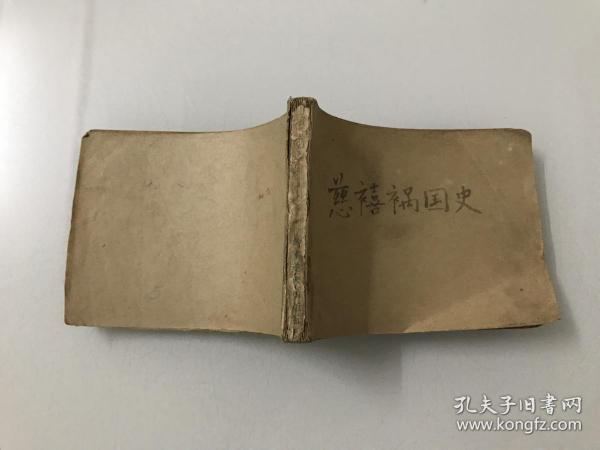 慈禧祸国史
孔夫子旧書网
www.kongfz.com